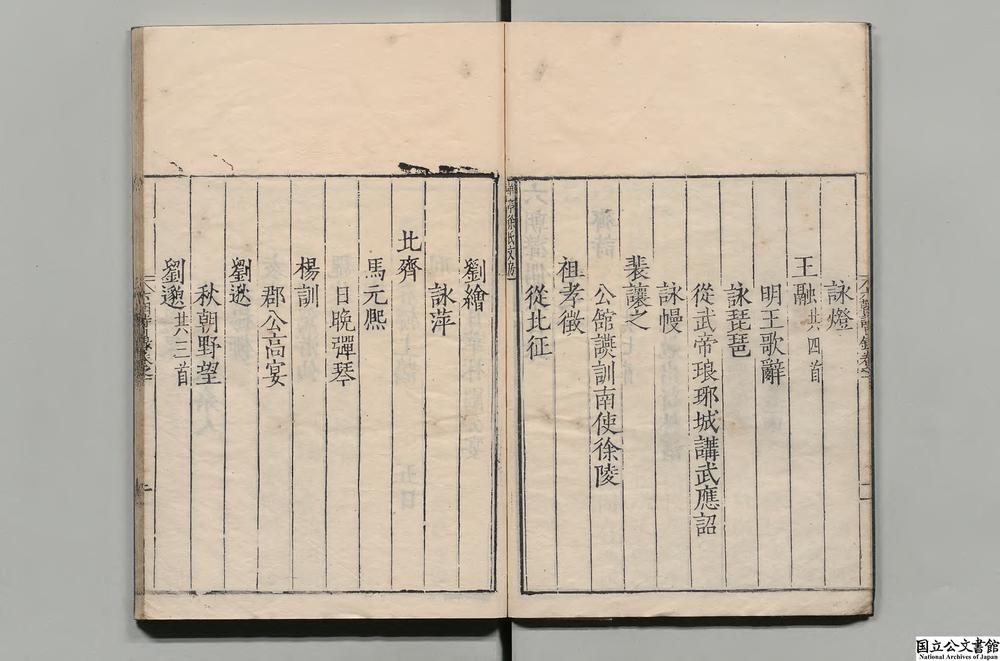 詠燈
王融共四首
明王歌辭
詠琵琶
從武帝琅琊城講武應詔
詠幔
裴讓之
公館讌詶南使徐陵
祖孝徵
從北征
劉繪
詠萍
北齊
馬元熙
日晚彈琴
楊訓
郡公高宴
劉逖
秋朝野望
劉邈共三首
国立公文書館
National Archives of Japan